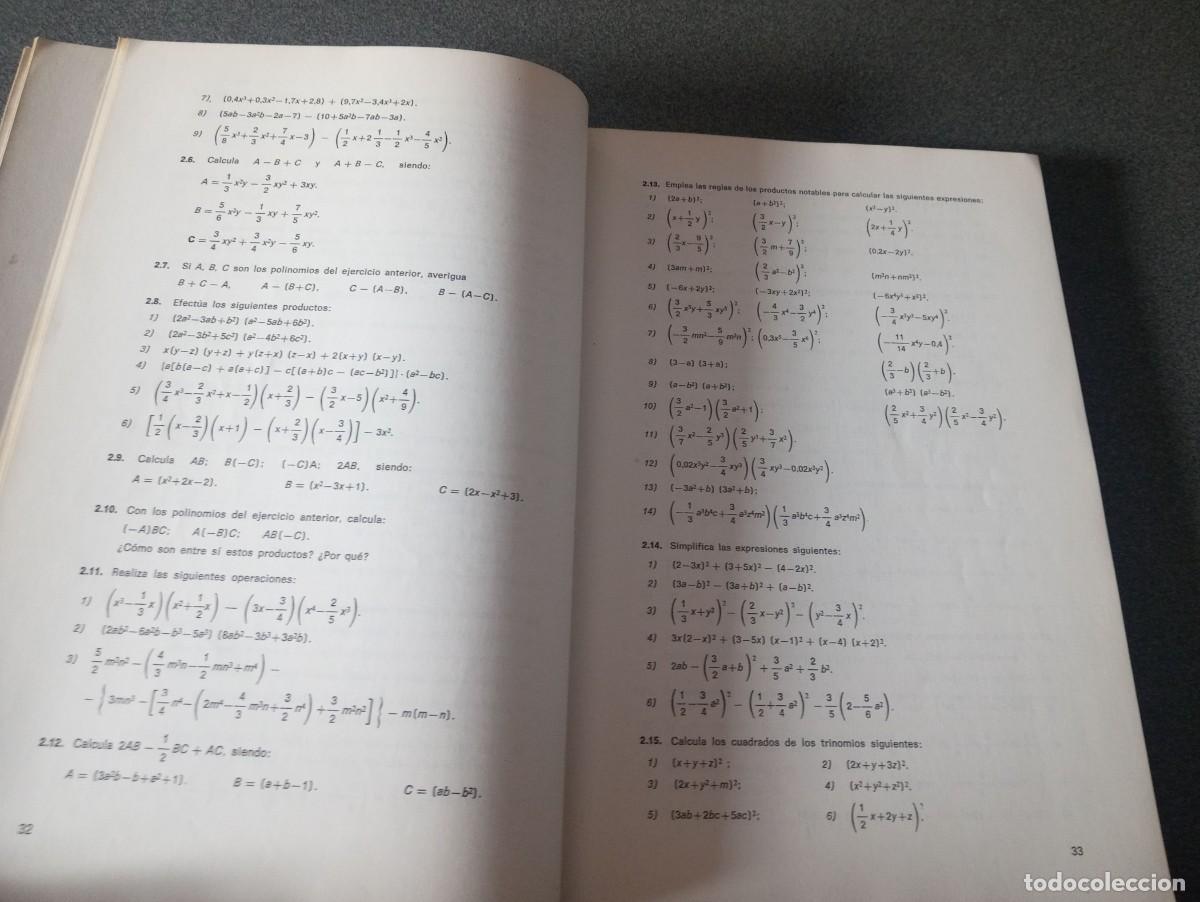 7). (0,4x³+0,3x²−1,7x+2,8) + (9,7x²−3,4x³+2x).
8) (5ab−3a²b−2a−7) − (10+5a²b−7ab−3a).
9) (5/8 x³+2/3 x²+7/4 x−3) − (1/2 x+2 1/3−1/2 x³−4/5 x²).
2.6. Calcula A − B + C y A + B − C, siendo:
A = 1/3 x²y − 3/2 xy² + 3xy.
B = 5/6 x²y − 1/3 xy + 7/5 xy².
C = 3/4 xy² + 3/4 x²y − 5/6 xy.
2.7. Si A, B, C son los polinomios del ejercicio anterior, averigua
B + C − A, A − (B+C), C − (A−B), B − (A−C).
2.8. Efectúa los siguientes productos:
1) (2a²−3ab+b²) (a²−5ab+6b²).
2) (2a²−3b²+5c²) (a²−4b²+6c²).
3) x(y−z) (y+z) + y(z+x) (z−x) + 2(x+y) (x−y).
4) {a[b(a−c) + a(a+c)] − c[(a+b)c − (ac−b²)]}·(a²−bc).
5) (3/4 x³−2/3 x²+x−1/2)(x+2/3) − (3/2 x−5)(x²+4/9).
6) [1/2(x−2/3)(x+1) − (x+2/3)(x−3/4)] − 3x².
2.9. Calcula AB; B(−C); (−C)A; 2AB, siendo:
A = (x²+2x−2). B = (x²−3x+1). C = (2x−x²+3).
2.10. Con los polinomios del ejercicio anterior, calcula:
(−A)BC; A(−B)C; AB(−C).
¿Cómo son entre sí estos productos? ¿Por qué?
2.11. Realiza las siguientes operaciones:
1) (x³−1/3 x)(x²+1/2 x) − (3x−3/4)(x⁴−2/5 x³).
2) (2ab²−6a²b−b³−5a³) (8ab²−3b³+3a²b).
3) 5/2 m²n²−(4/3 m³n−1/2 mn³+m⁴) −
−{3mn³−[3/4 n⁴−(2m⁴−4/3 m³n+3/2 n⁴)+3/2 m²n²]} − m(m−n).
2.12. Calcula 2AB − 1/2 BC + AC, siendo:
A = (3a²b−b+a²+1). B = (a+b−1). C = (ab−b²).
32
2.13. Emplea las reglas de los productos notables para calcular las siguientes expresiones:
1) (2a+b)²; (a+b²)²; (x²−y)².
2) (x+1/2 y)²; (3/2 x−y)²; (2x+1/4 y)².
3) (2/3 x−9/5)²; (3/2 m+7/9)²; (0,2x−2y)².
4) (3am+m)²; (2/3 a²−b²)²; (m²n+nm²)².
5) (−6x+2y)²; (−3xy+2x²)²; (−6x⁴y⁵+x²)².
6) (3/2 x³y+5/3 xy³)²; (−4/3 x⁴−3/2 y⁴)²; (−3/4 x³y³−5xy⁴)².
7) (−3/2 mn²−5/9 m³n)²; (0,3x⁵−3/5 x⁴)²; (−11/14 x⁴y−0,4)².
8) (3−a) (3+a); (2/3−b)(2/3+b).
9) (a−b²) (a+b²); (a³+b²) (a³−b²).
10) (3/2 a²−1)(3/2 a²+1); (2/5 x²+3/4 y²)(2/5 x²−3/4 y²).
11) (3/7 x²−2/5 y³)(2/5 y³+3/7 x²).
12) (0,02x³y²−3/4 xy³)(3/4 xy³−0,02x³y²).
13) (−3a²+b) (3a²+b);
14) (−1/3 a³b⁴c+3/4 a³z⁴m²)(1/3 a³b⁴c+3/4 a³z⁴m²).
2.14. Simplifica las expresiones siguientes:
1) (2−3x)² + (3+5x)² − (4−2x)².
2) (3a−b)² − (3a+b)² + (a−b)².
3) (1/3 x+y²)²−(2/3 x−y²)²−(y²−3/4 x)².
4) 3x(2−x)² + (3−5x) (x−1)² + (x−4) (x+2)².
5) 2ab −(3/2 a+b)²+3/5 a²+2/3 b².
6) (1/2−3/4 a²)²−(1/2+3/4 a²)²−3/5(2−5/6 a²).
2.15. Calcula los cuadrados de los trinomios siguientes:
1) (x+y+z)²; 2) (2x+y+3z)².
3) (2x+y²+m)²; 4) (x²+y²+z²)².
5) (3ab+2bc+5ac)²; 6) (1/2 x+2y+z)².
33
todocoleccion